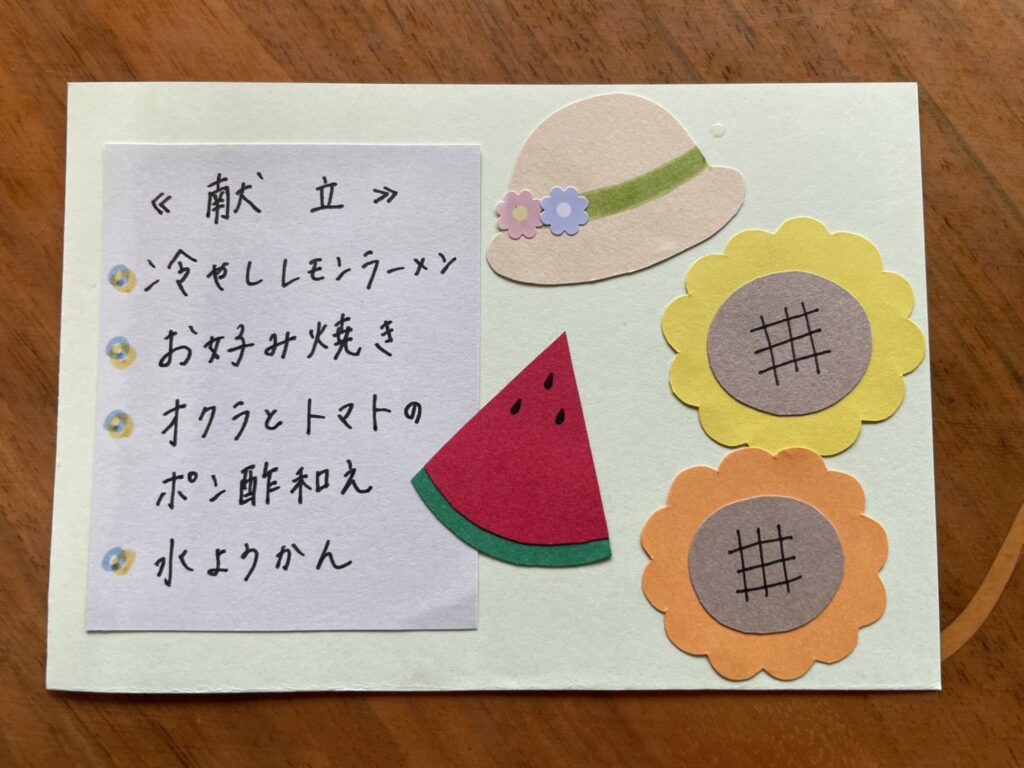 ≪ 献 立 ≫
冷やしレモンラーメン
お好み焼き
オクラとトマトの
ポン酢和え
水ようかん